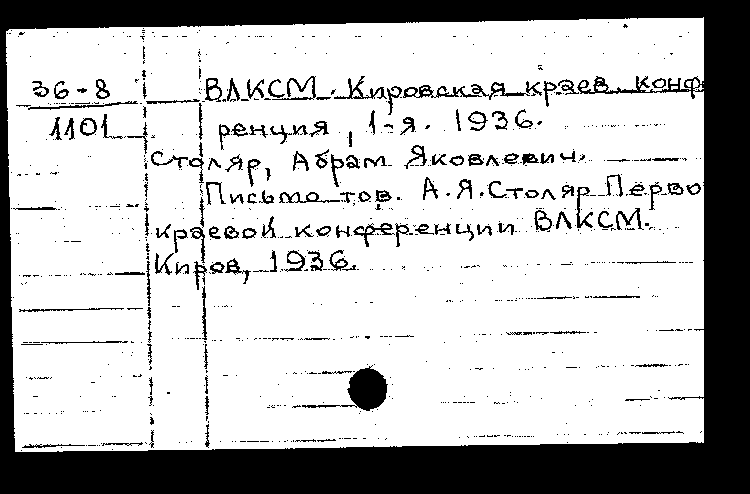 36-8 ВЛКСМ. Кировская краев. конфе
1101 ренция, 1-я. 1936.
Столяр, Абрам Яковлевич.
Письмо тов. А.Я.Столяр Перво
краевой конференции ВЛКСМ.
Киров, 1936.